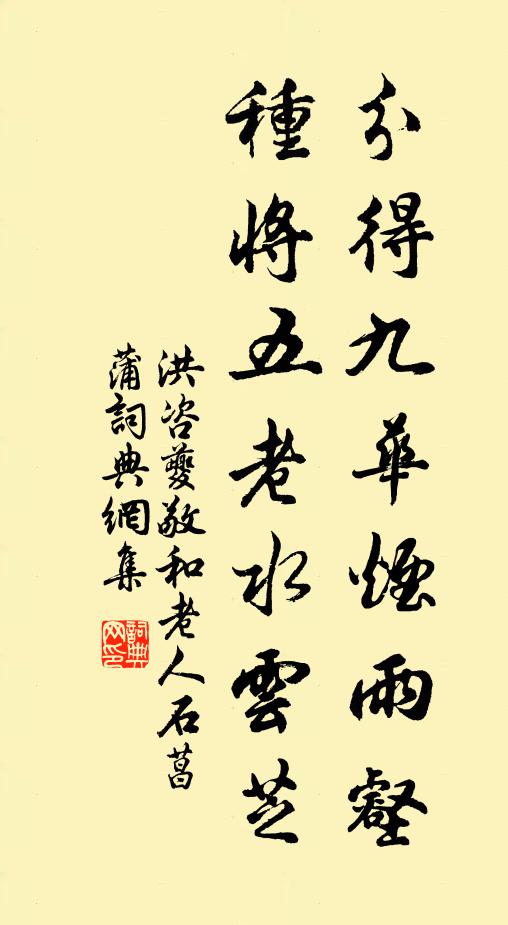 分得九華煙雨壑
種將五老水雲芝
洪咨夔敬和老人石菖
蒲詞典網集
詞典
网印